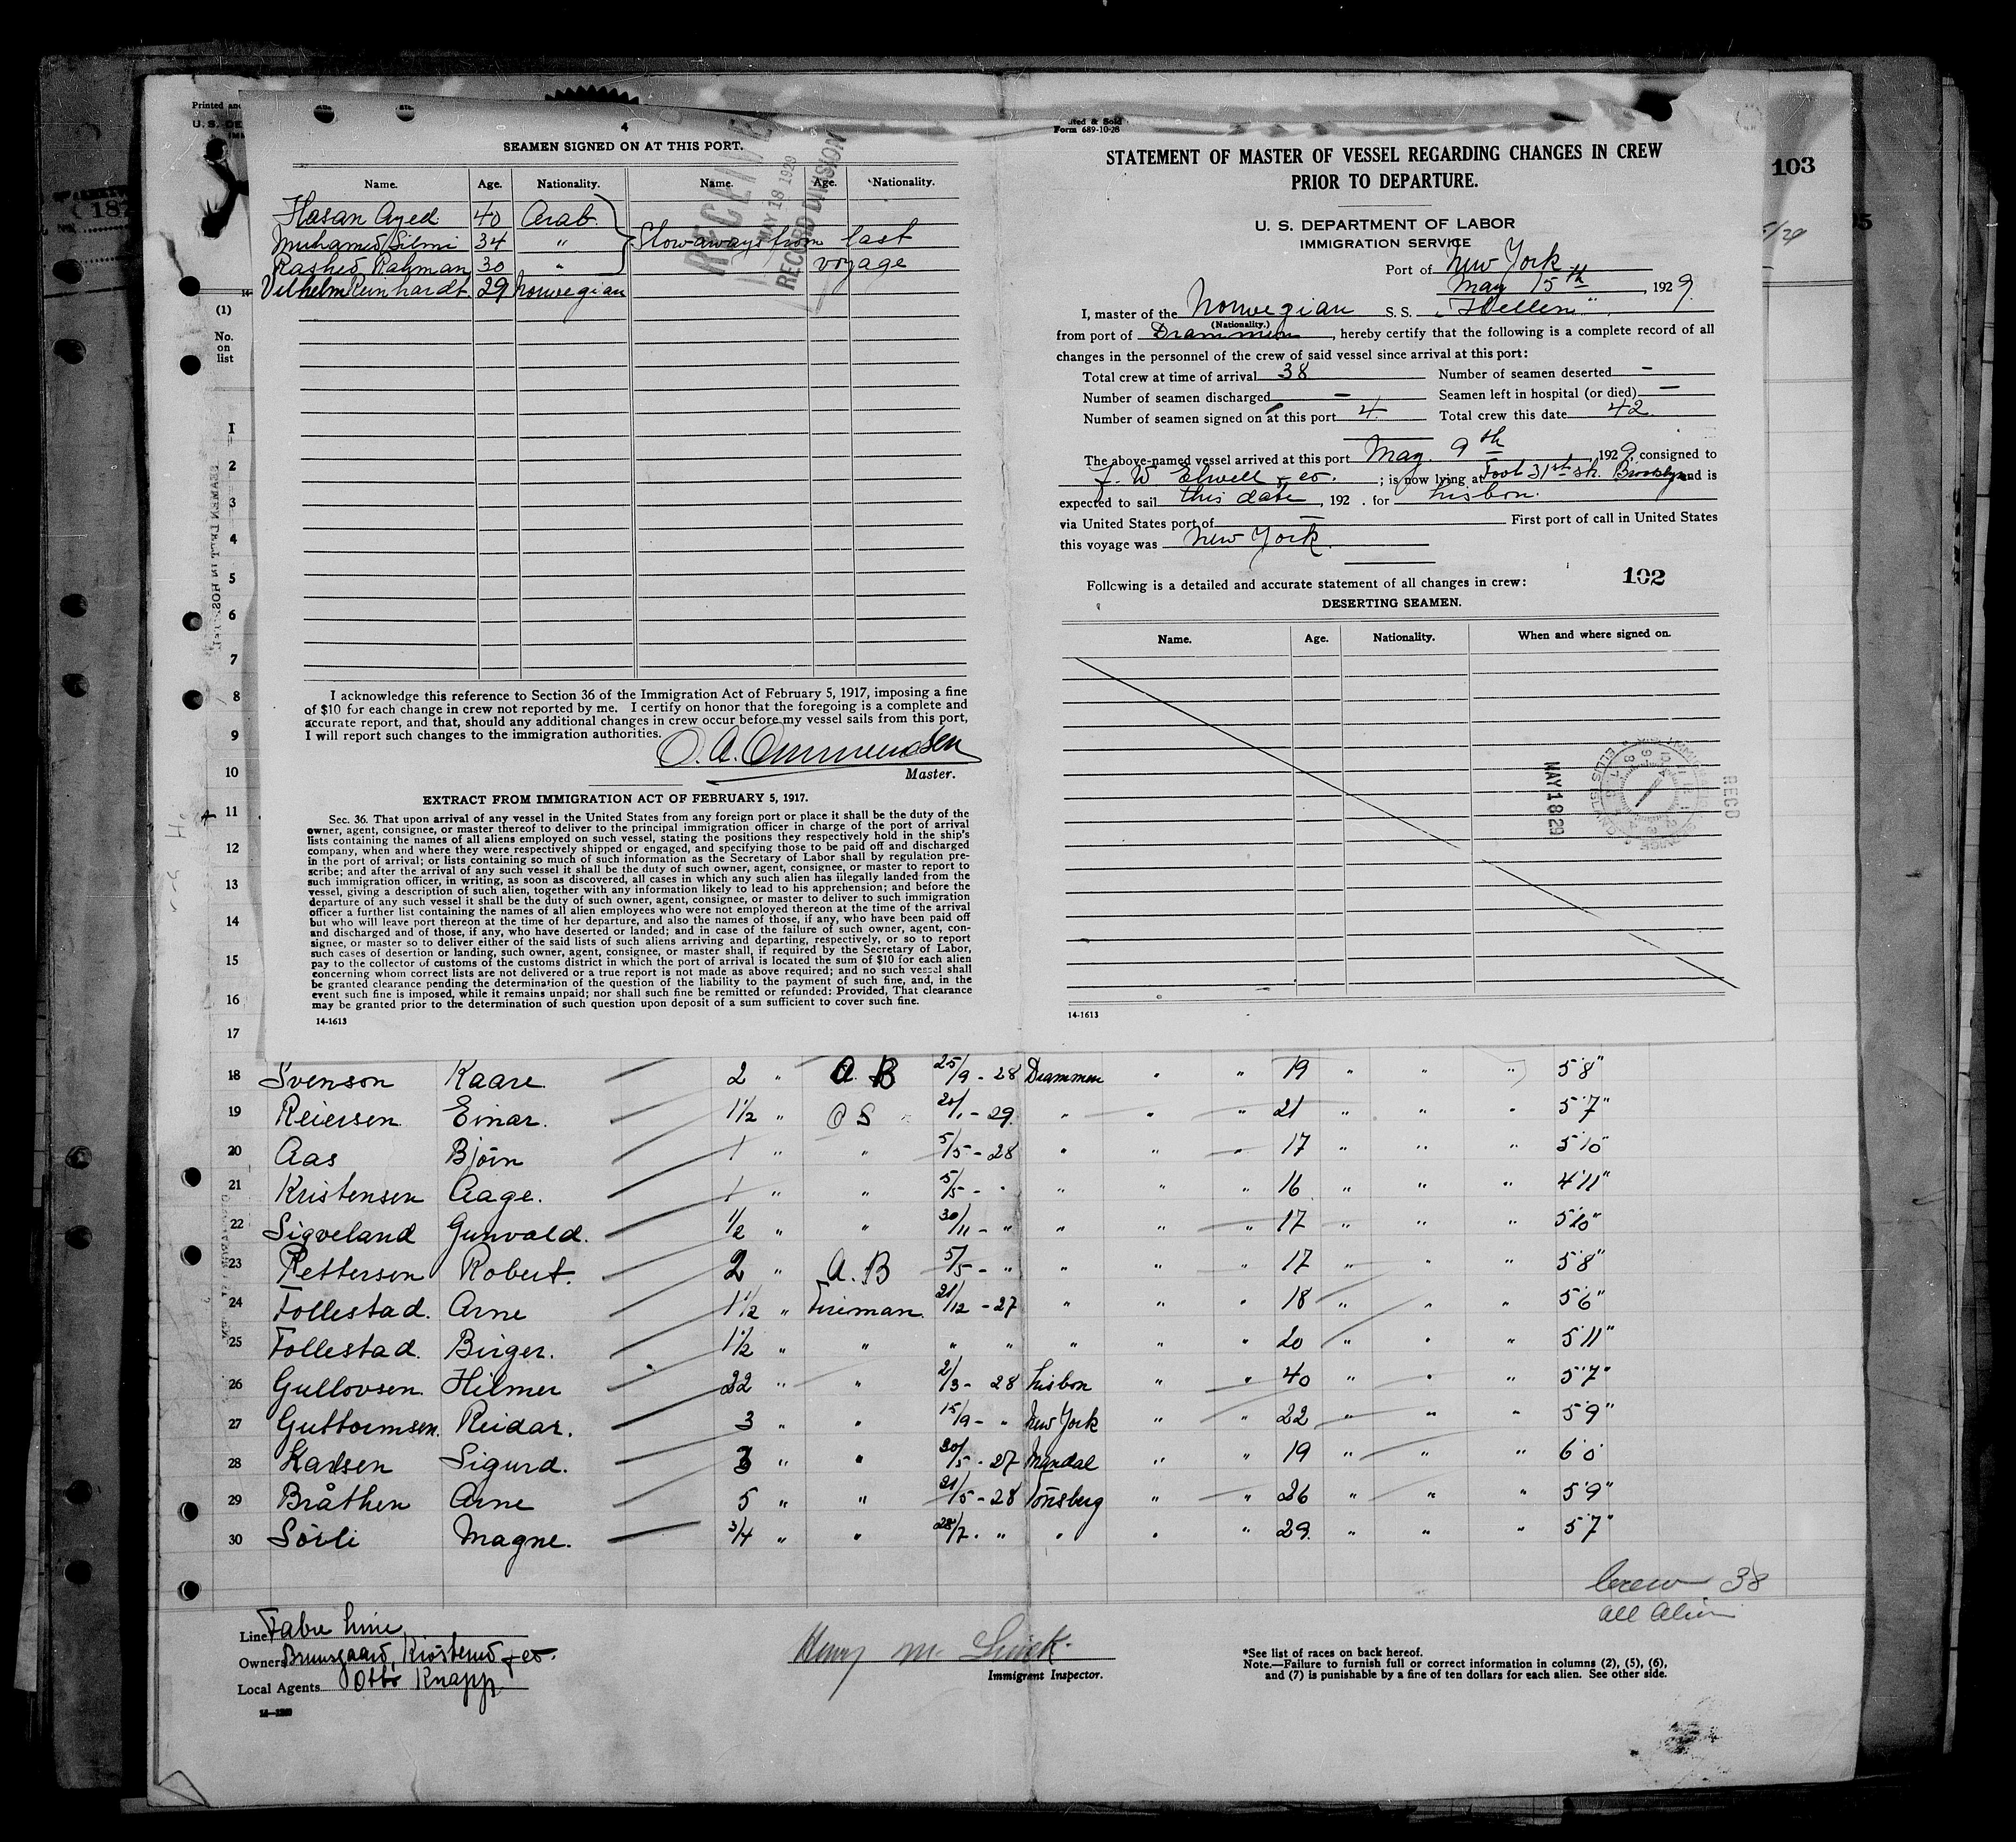 4
SEAMEN SIGNED ON AT THIS PORT.
Name. Age. Nationality. Name. Age. Nationality.
Hasan Ayed 40 Arab
Muhamed Silmi 34 " Stowaways from last
Rashed Rahman 30 " voyage
Vilhelm Reinhardt. 29 Norwegian
RECEIVED
MAY 18 1929
RECORD DIVISION
I acknowledge this reference to Section 36 of the Immigration Act of February 5, 1917, imposing a fine
of $10 for each change in crew not reported by me. I certify on honor that the foregoing is a complete and
accurate report, and that, should any additional changes in crew occur before my vessel sails from this port,
I will report such changes to the immigration authorities.
O. A. Ommundsen
Master.
EXTRACT FROM IMMIGRATION ACT OF FEBRUARY 5, 1917.
Sec. 36. That upon arrival of any vessel in the United States from any foreign port or place it shall be the duty of the
owner, agent, consignee, or master thereof to deliver to the principal immigration officer in charge of the port of arrival
lists containing the names of all aliens employed on such vessel, stating the positions they respectively hold in the ship's
company, when and where they were respectively shipped or engaged, and specifying those to be paid off and discharged
in the port of arrival; or lists containing so much of such information as the Secretary of Labor shall by regulation pre-
scribe; and after the arrival of any such vessel it shall be the duty of such owner, agent, consignee, or master to report to
such immigration officer, in writing, as soon as discovered, all cases in which any such alien has illegally landed from the
vessel, giving a description of such alien, together with any information likely to lead to his apprehension; and before the
departure of any such vessel it shall be the duty of such owner, agent, consignee, or master to deliver to such immigration
officer a further list containing the names of all alien employees who were not employed thereon at the time of the arrival
but who will leave port thereon at the time of her departure, and also the names of those, if any, who have been paid off
and discharged and of those, if any, who have deserted or landed; and in case of the failure of such owner, agent, con-
signee, or master so to deliver either of the said lists of such aliens arriving and departing, respectively, or so to report
such cases of desertion or landing, such owner, agent, consignee, or master shall, if required by the Secretary of Labor,
pay to the collector of customs of the customs district in which the port of arrival is located the sum of $10 for each alien
concerning whom correct lists are not delivered or a true report is not made as above required; and no such vessel shall
be granted clearance pending the determination of the question of the liability to the payment of such fine, and, in the
event such fine is imposed, while it remains unpaid; nor shall such fine be remitted or refunded: Provided, That clearance
may be granted prior to the determination of such question upon deposit of a sum sufficient to cover such fine.
14-1613
Form 689-10-28
STATEMENT OF MASTER OF VESSEL REGARDING CHANGES IN CREW
PRIOR TO DEPARTURE.
103
U. S. DEPARTMENT OF LABOR
IMMIGRATION SERVICE
Port of New York
May 15th, 1929.
I, master of the Norwegian S. S. "Hellen"
(Nationality.)
from port of Drammen, hereby certify that the following is a complete record of all
changes in the personnel of the crew of said vessel since arrival at this port:
Total crew at time of arrival 38 Number of seamen deserted -
Number of seamen discharged - Seamen left in hospital (or died) -
Number of seamen signed on at this port 4. Total crew this date 42
The above-named vessel arrived at this port May. 9th, 1929, consigned to
F. W. Elwell & co.; is now lying at Foot 31st str. Brooklyn and is
expected to sail this date, 192 . for Lisbon.
via United States port of - First port of call in United States
this voyage was New York.
102
Following is a detailed and accurate statement of all changes in crew:
DESERTING SEAMEN.
Name. Age. Nationality. When and where signed on.
MAY 18 29
REC'D
14-1613
Printed and
(1)
No.
on
list
1
2
3
4
5
6
7
8
9
10
11
12
13
14
15
16
17
18 Svenson Kaare 2 " A B 25/9 - 28 Drammen " " 19 " " " 5'8"
19 Reiersen Einar. 1 1/2 " O S - 29. " " " 21 " " " 5'7"
20 Aas Bjørn 1 " " 5/5 - 28 " " " 17 " " " 5'10"
21 Kristensen Aage. 1 " " 5/5 - " " " " 16 " " " 4'11"
22 Sigveland Gunvald. 1/2 " " 30/11 - " " " " 17 " " " 5'10"
23 Pettersen Robert. 2 " A. B 5/5 - " " " " 17 " " " 5'8"
24 Follestad. Arne 1 1/2 " Fireman 21/12 - 27 " " " 18 " " " 5'6"
25 Follestad. Birger. 1 1/2 " " " " " " " 20 " " " 5'11"
26 Gullovsen Hilmer 22 " " 2/3 - 28 Lisbon " " 40 " " " 5'7"
27 Guttormsen. Reidar. 3 " " 15/9 - " New York " " 22 " " " 5'9"
28 Karlsen Sigurd. 3 " " 20/5 - 27 Mandal " " 19 " " " 6'0
29 Bråthen Arne 5 " " 21/5 - 28 Tønsberg " " 26 " " " 5'9"
30 Magne. 3/4 " " 28/7 . " " " " 29. " " " 5'7"
Crew 38
all alien
Line Fabre Line
Owners Bruusgaard, Kiøsterud & co.
Local Agents Otto Knapp
Henry M.
Immigrant Inspector.
*See list of races on back hereof.
Note.—Failure to furnish full or correct information in columns (2), (5), (6),
and (7) is punishable by a fine of ten dollars for each alien. See other side.